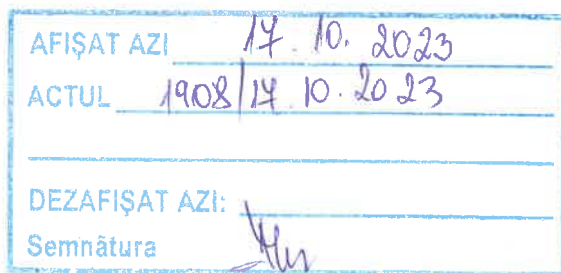 AFIŞAT AZI 17.10.2023
ACTUL 1908/17.10.2023
DEZAFIŞAT AZI:
Semnătura